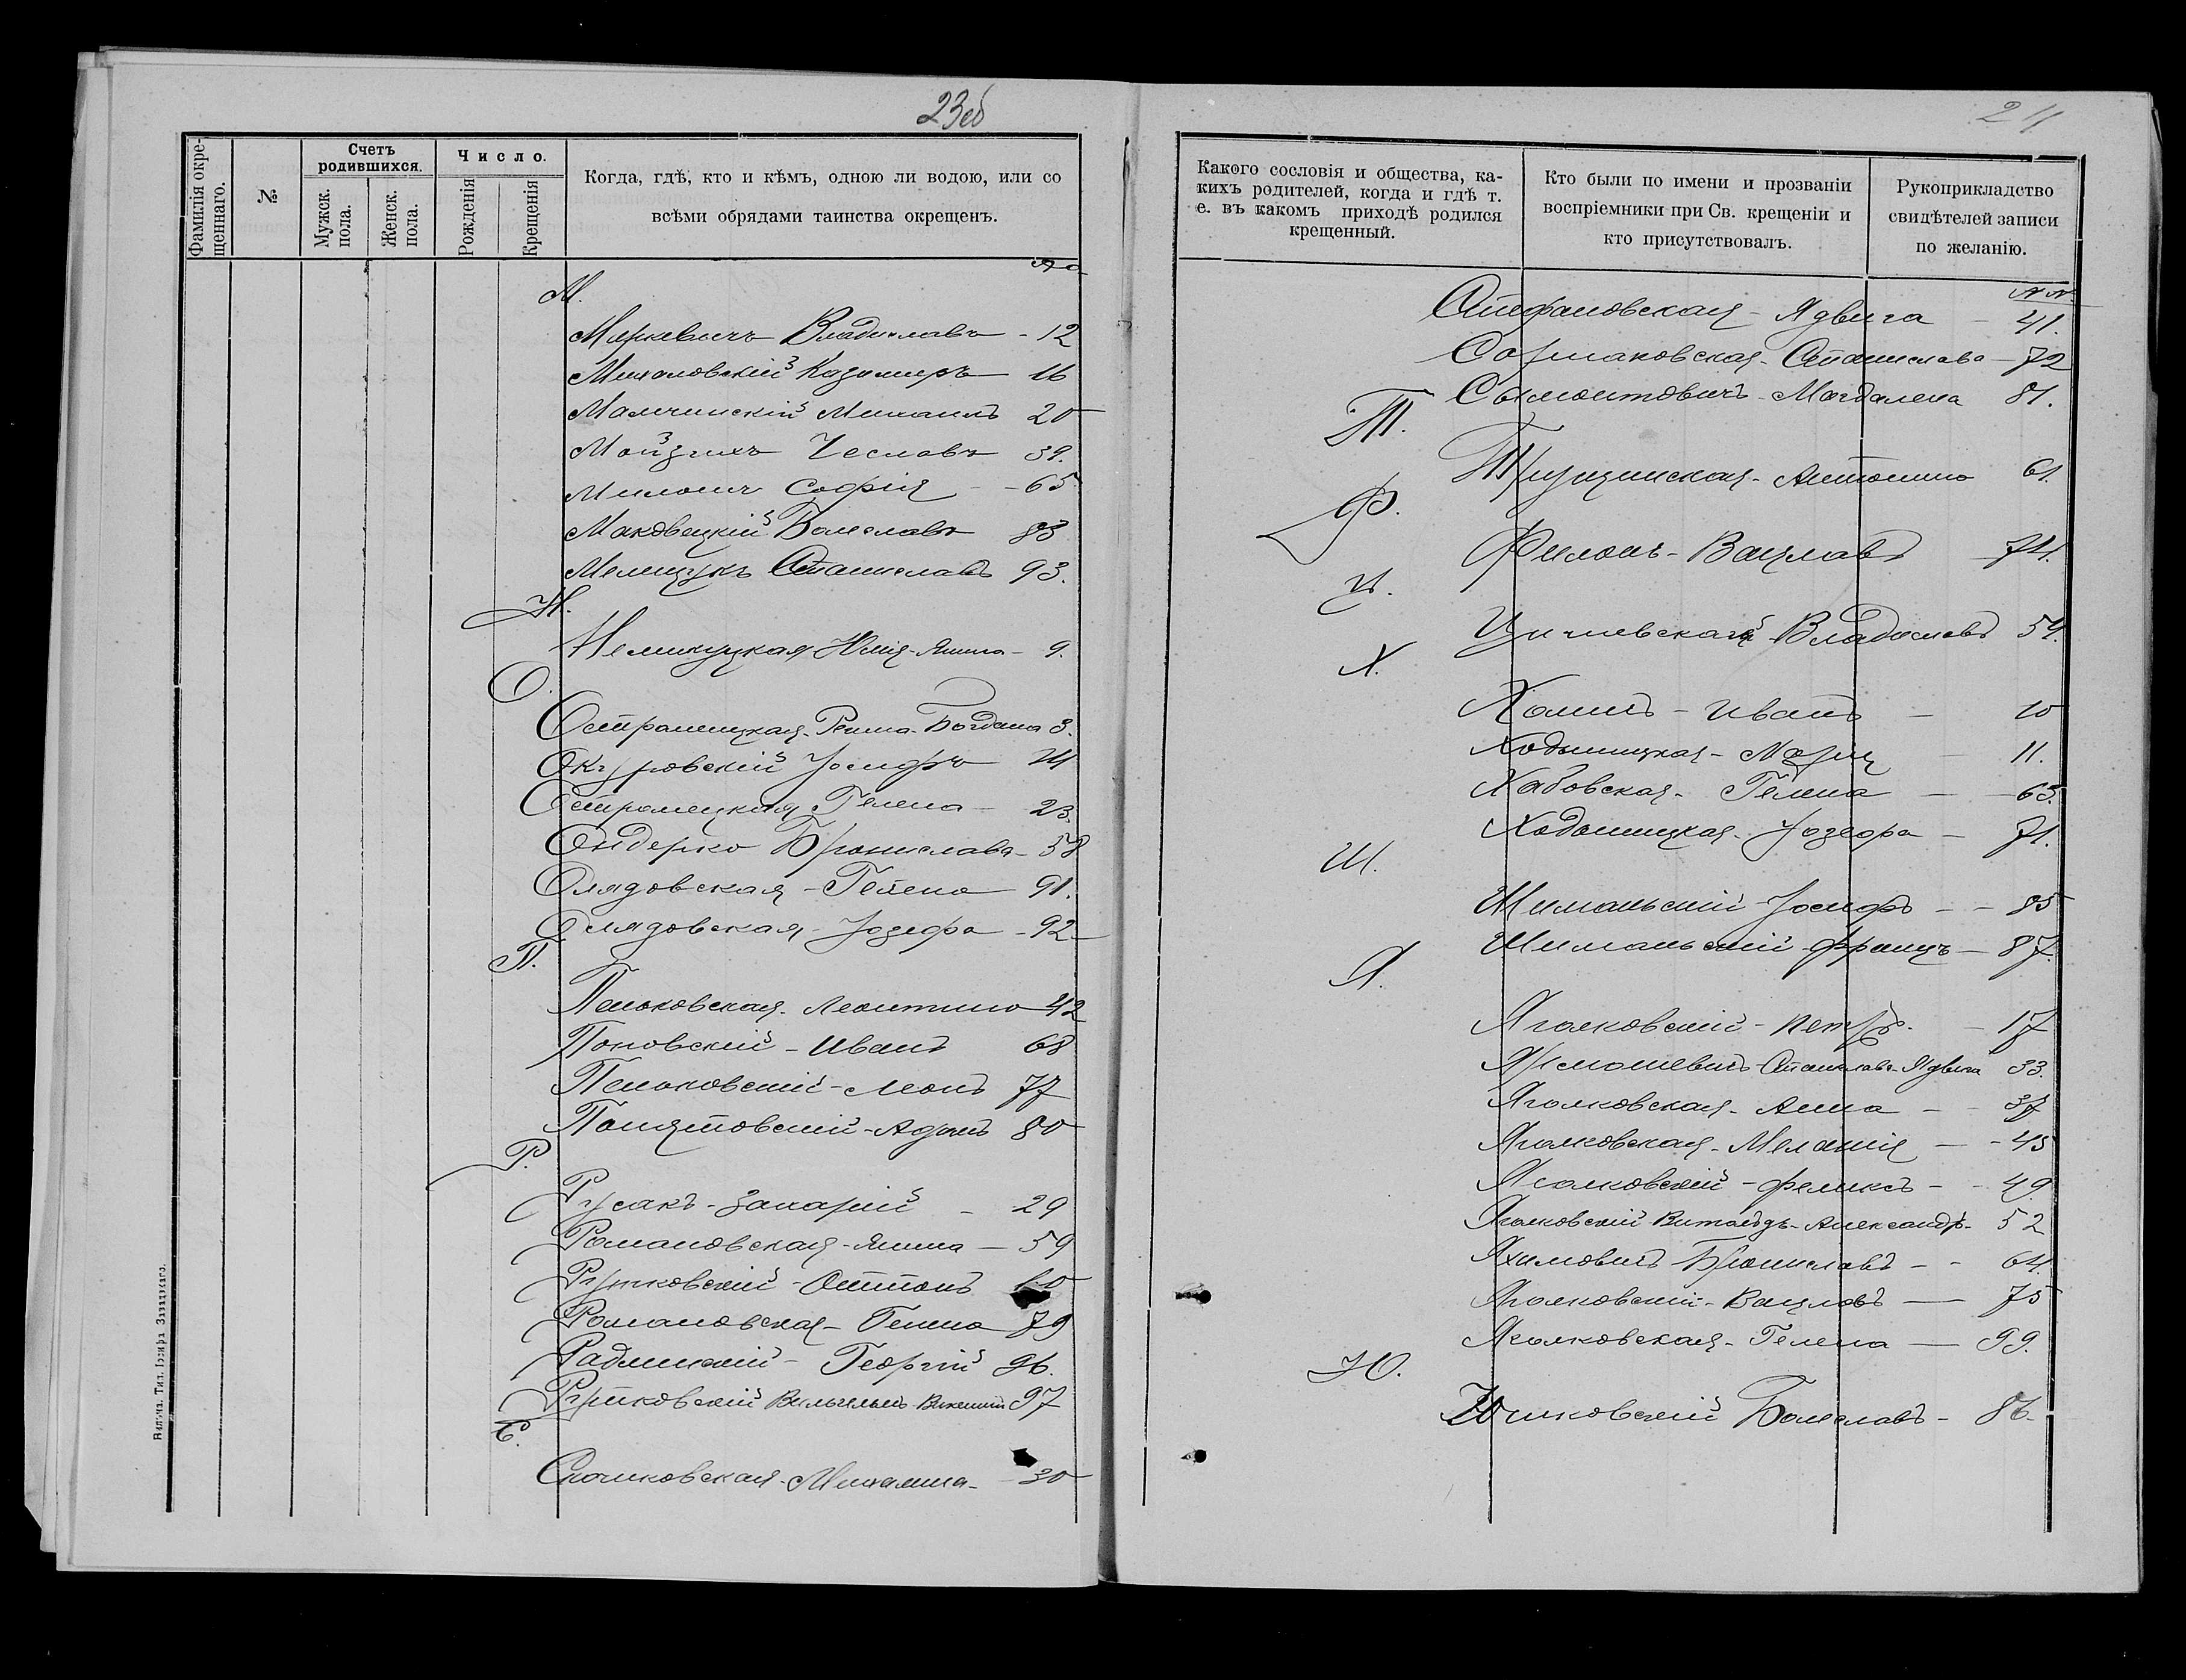 23об
Фамилія окрещеннаго.
№
Счетъ родившихся.
Мужск. пола.
Женск. пола.
Число.
Рожденія
Крещенія
Когда, гдѣ, кто и кѣмъ, одною ли водою, или со
всѣми обрядами таинства окрещенъ.
М.
Миркевичъ Владиславъ - 12
Михаловскій Казимиръ 16
Мамчинскій Михаилъ 20
Чеславъ 39.
Софія - 65
Маковецкій Болеславъ 83
Мелещукъ Станиславъ 93.
Н.
Юлія-Янина - 9.
О.
Остромецкая-Рена-Богдана 3.
Іосифъ 24
Остромецкая Гелена - 23.
Ондерко Бронислава - 58
Олядовская - Гелена 91.
Олядовская - Юзефа - 92
П.
Пеньковская - Леонтина 42
Поповскій - Иванъ 68
Пеньковскій - Леонъ 77
Понятовскій - Адамъ 80
Р.
Русакъ - Захарій - 29
Романовская - Янина - 59
Рутковскій - Оттонъ
Романовская - Генена 79
Радлинскій - Георгій 96.
Рутковскій Вильгельмъ-Викентій 97
С.
Сачковская - Михалина - 30
Вильна. Тип. Іосифа Завадзкаго.
24
Какого сословія и общества, ка-
кихъ родителей, когда и гдѣ т.
е. въ какомъ приходѣ родился
крещенный.
Кто были по имени и прозваніи
воспріемники при Св. крещеніи и
кто присутствовалъ.
Рукоприкладство
свидѣтелей записи
по желанію.
№№
Стефановская - Ядвига - 41.
Сармаковская - Станислава - 72
Сымонтовичъ - Магдалена 81.
Т.
Антонина 61.
Ф.
Филонъ - Вацлавъ 74.
Ц.
Владиславъ 54.
Х.
Хомичъ - Иванъ - 10
Ходыницкая - Марія - 11.
Хабовская - Гелена - 63.
Ходыницкая - Юзефа - 71.
Ш.
Шиманскій - Іосифъ - - 85
Шиманьскій - Францъ - 87.
Я.
Яголковскій - Петръ. - 17
Ярмошевичъ - Станислава-Ядвига 33.
Яголковская - Анна - - 37
Яголковская - Меланія - - 45
Яголковскій - Феликсъ - - 49.
Яголковскій Витольдъ-Александръ - 52
Яхимовичъ Брониславъ - - 64.
Яголковскій - Вацлавъ - 75
Яголковская - Гелена - 99.
Ю.
Юшковскій Болеславъ - 86.